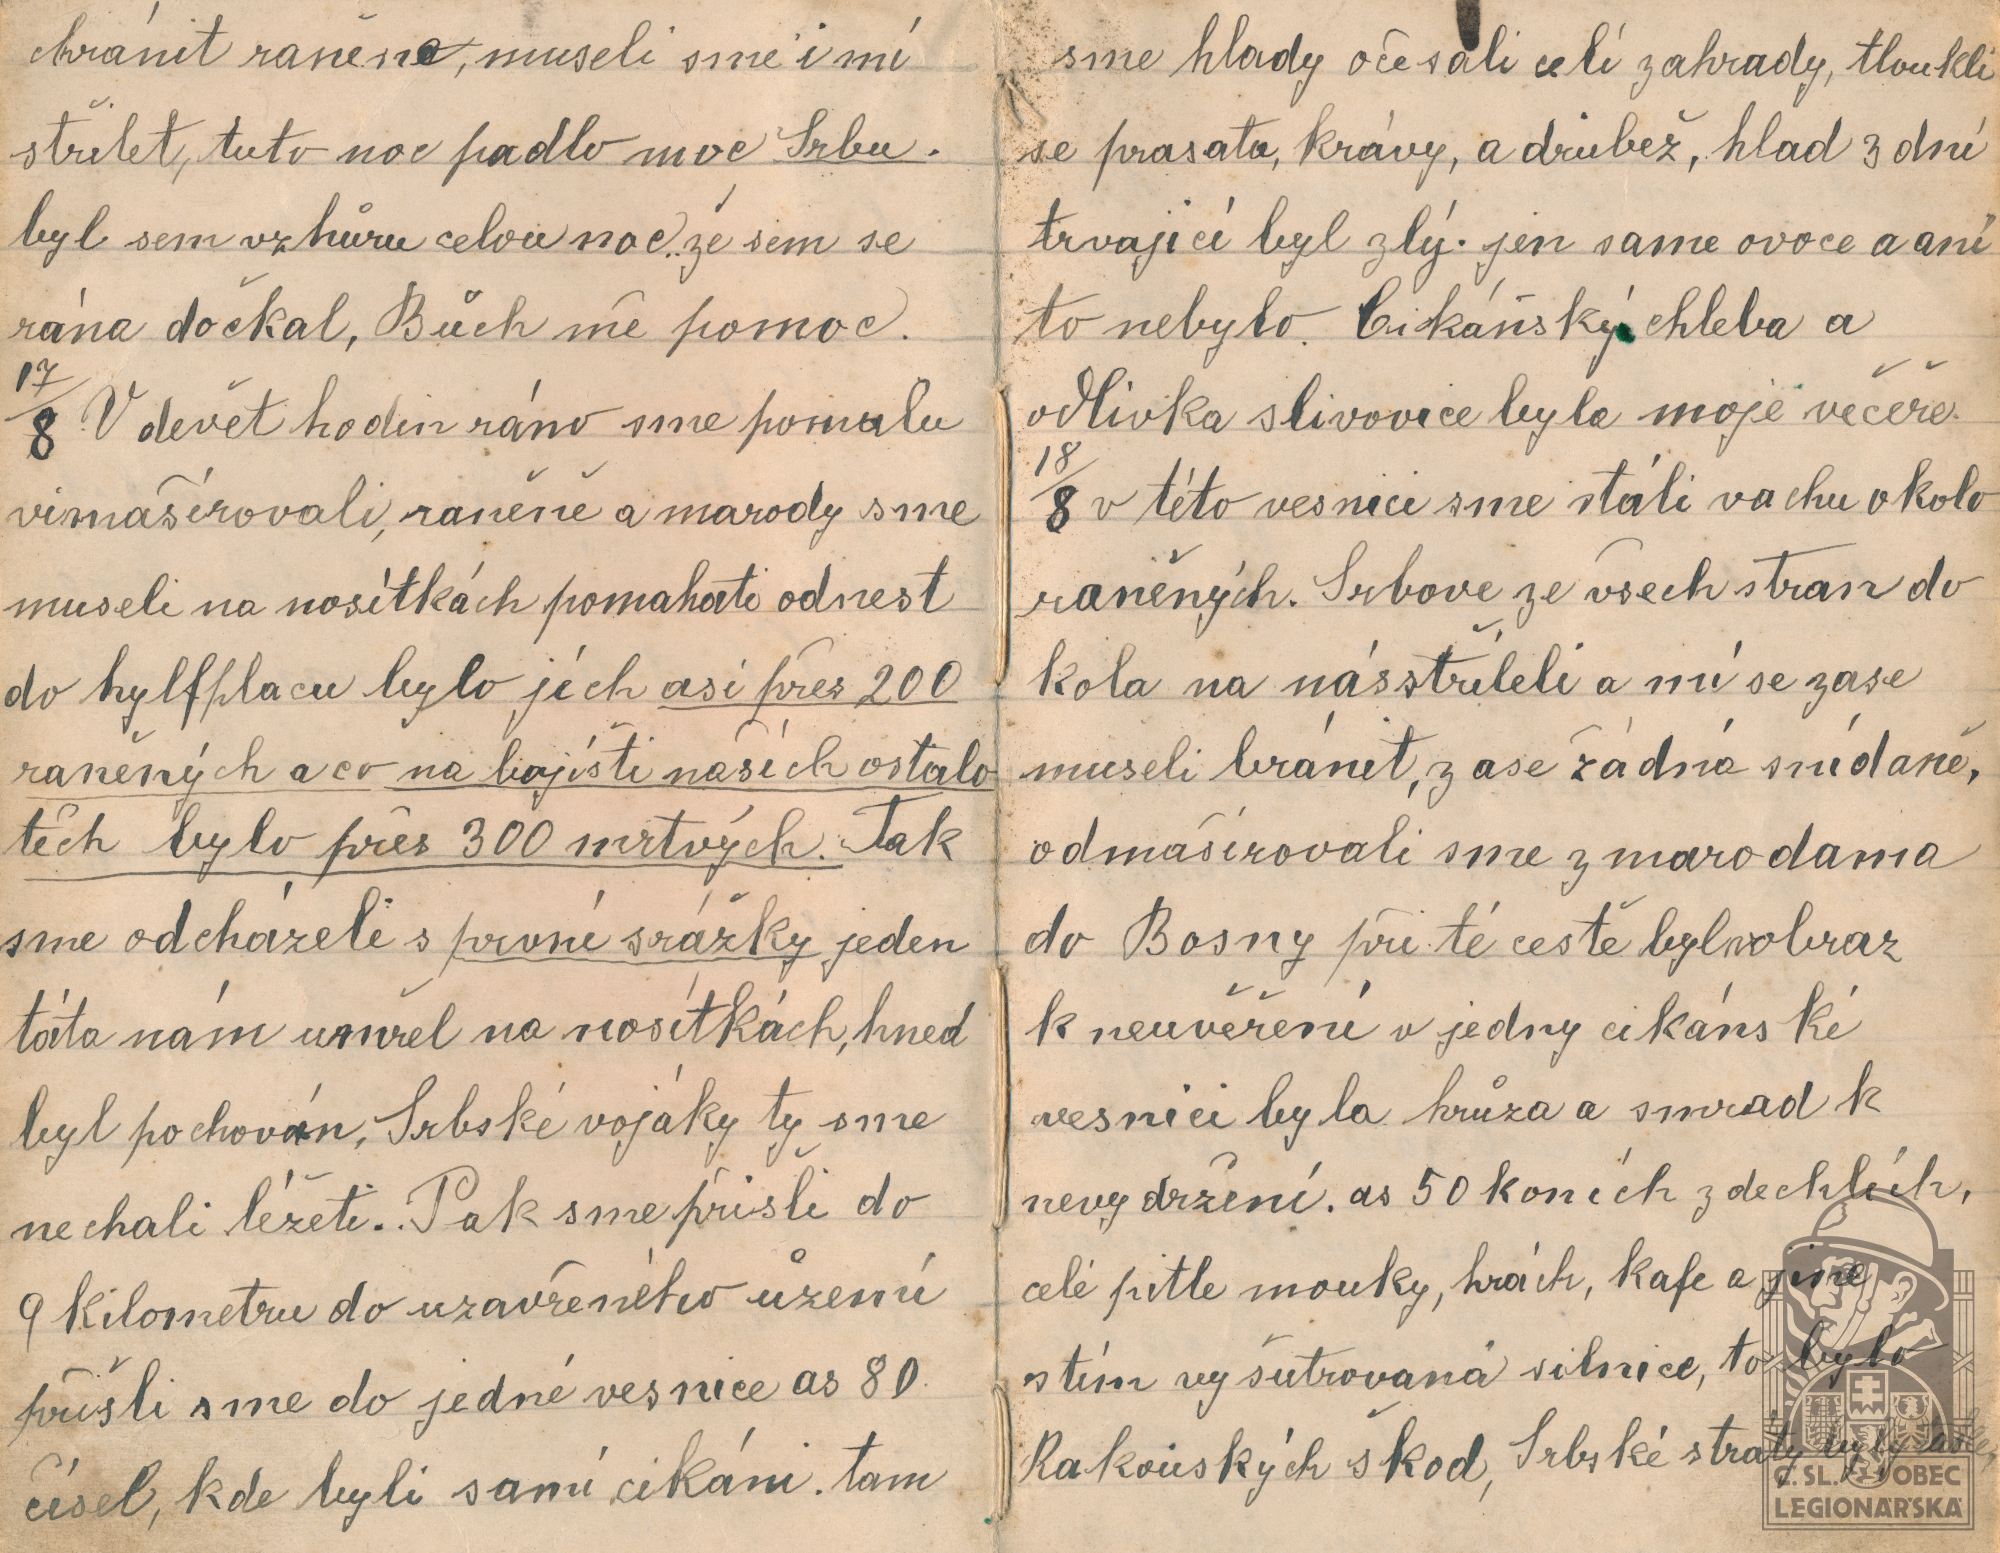 chránit raněne, museli sme i mí
střílet, tuto noc padlo moc Srbu.
byl sem vzhůru celou noc..že sem se
rána dočkal, Bůch mě pomoc.
17/8 V devět hodin ráno sme pomalu
vimašírovali, raněně a marody sme
museli na nosítkách pomahati odnest
do hylfplacu bylo jich asi přes 200
raněných a co na bojišti našich ostalo
těch bylo přes 300 mrtvých. Tak
sme odcházeli s první srážky jeden
táta nám umřel na nosítkách, hned
byl pochován, Srbské vojáky ty sme
nechali léžeti.. Pak sme přišli do
9 kilometru do uzavřeného území
přišli sme do jedné vesnice as 80
čísel, kde byli samí cikáni. tam
sme hlady očesali celí zahrady, tloukli
se prasata, krávy, a drůbež, hlad 3 dní
trvající byl zlý. jen same ovoce a ani
to nebylo. Cikáňský chleba a
odlivka slivovice byla moje večeře.
18/8 v této vesnici sme stáli vachu okolo
raněných. Srbove ze všech stran do
kola na nás stříleli a mi se zase
museli bránit, zase žádná snídaně,
odmašírovali sme z marodama
do Bosny při té cestě byl obraz
k neuvěření v jedny cikánské
vesnici byla hrůza a smrad k
nevydržení. as 50 koních zdechlích,
celé pitle mouky, hrách, kafe a jiné
stím vyšutrovaná silnice, to bylo
Rakouských škod, Srbské straty byly
Č. SL. OBEC
LEGIONÁŘSKÁ